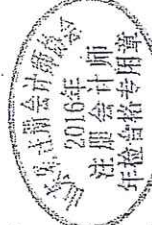 北京注册会计师协会
2016年
注册会计师
年检合格专用章